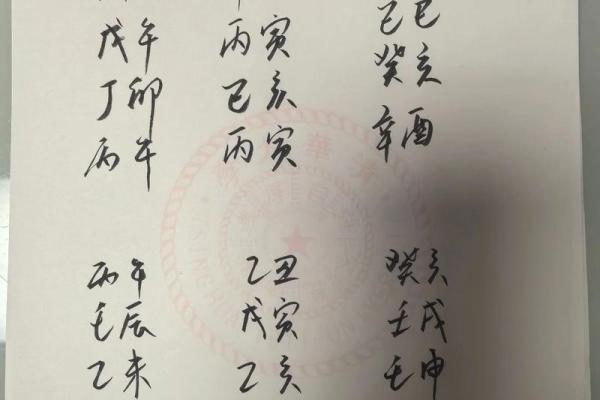 己巳
戊午 丙寅 癸亥
丁卯 己亥 辛酉
丙午 丙寅
丙午 乙丑 癸亥
壬辰 戊寅 壬戌
乙未 乙亥 壬申